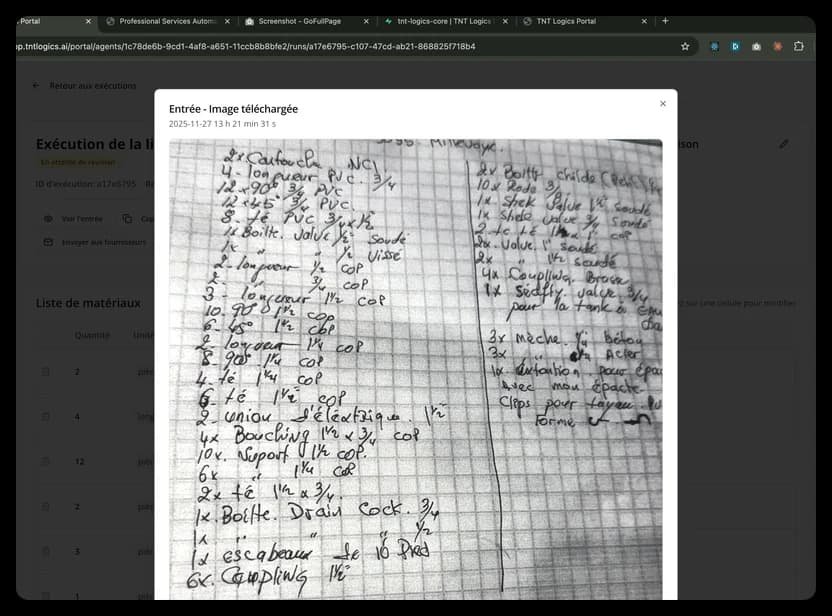 Portal
Professional Services Autom
Screenshot - GoFullPage
tnt-logics-core | TNT Logics
TNT Logics Portal
op.tntlogics.ai/portal/agents/1c78de6b-9cd1-4af8-a651-11ccb8b8bfe2/runs/a17e6795-c107-47cd-ab21-868825f718b4
Retour aux exécutions
Exécution de la li
ison
En attente de révision
ID d'exécution: a17e6795
Voir l'entrée
Cop
Envoyer aux fournisseurs
Liste de matériaux
sur une cellule pour modifier
Quantité
Unité
2
4
12
2
3
1
Entrée - Image téléchargée
2025-11-27 13 h 21 min 31 s
2x Cartouche NC
4- longueur PVC. 3/4
12x90° 3/4 PVC
12x45° 3/4 PVC.
8- té PVC 3/4 x 1/2
1x Boitte. Valve 1/2" Soudé
1x " " 1/2 Vissé
2- longueur 1/2 COP
2- " 3/4 COP
3- longueur 1 1/2 COP
10. 90° 1 1/2 COP
6- 45° 1 1/2 COP
2- longueur 1 1/4 COP
8- 90° 1 1/4 COP
4- té 1 1/4 COP
6- té 1 1/2" COP
2- union 1 1/2
4x Bouching 1 1/2 x 3/4 COP
10x. Suport 1 1/2 COP.
6x " 1 1/4 COP
2x té 1 1/2 x 3/4.
1x. Boitte. Drain Cock. 3/4
1x " " " 1/2
1x escabeaux de 10 Pied
6x. Coupling 1 1/2"
2x Boitte
10x Rode 3/
1x Shek Valve 1 1/2 soudé
1x Shek Valve 3/4 Soudé
2x. Valve. 1" soudé
2x " 1 1/2 soudé
4x Coupling. Brass
1x Sedfty. valve 3/4
pour la tank à Eau
3x mèche. 1/4 béton
3x " Acier
1x. pour épa
Avec mon épacte
Clips pour tuyau.
Forme